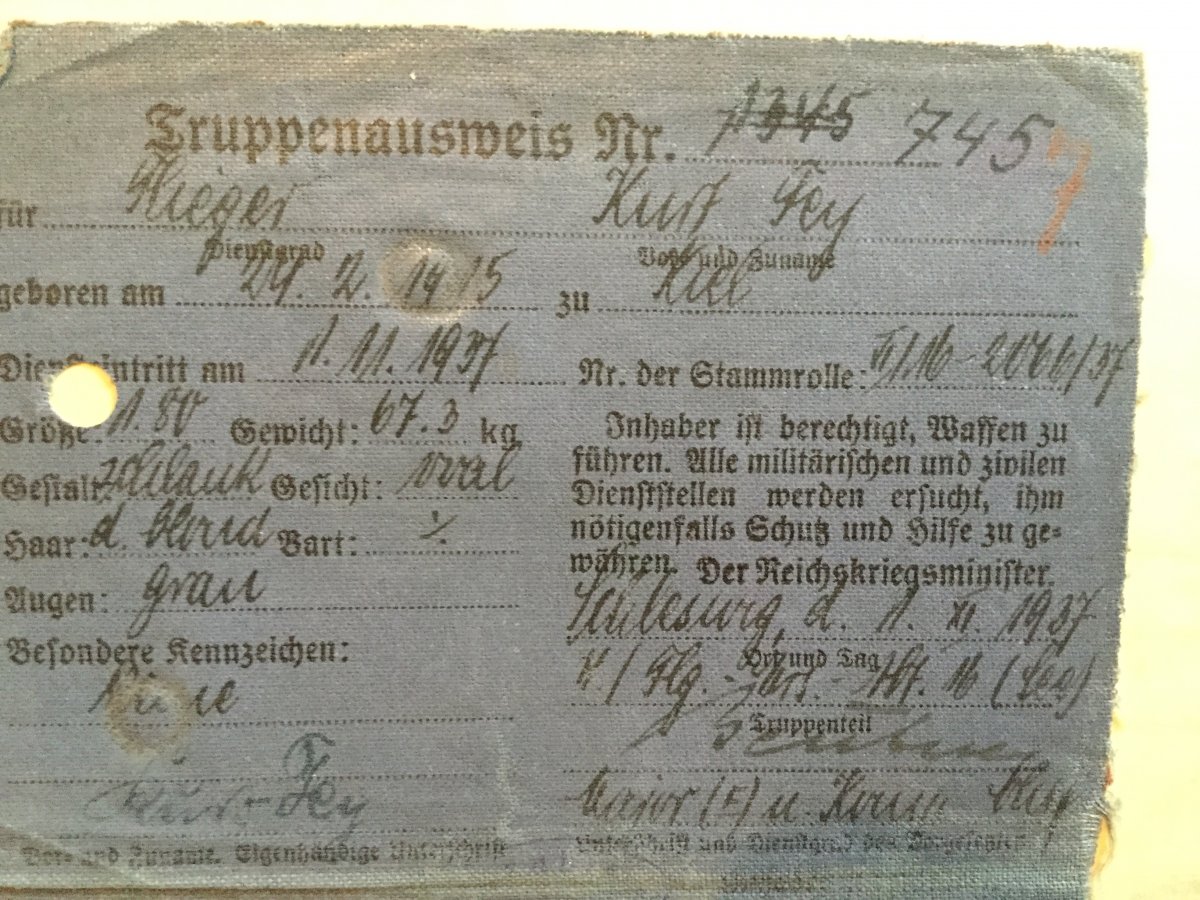 Truppenausweis Nr. 745 7
für Flieger Kurt Fey
Dienstgrad Vor- und Zuname
geboren am 24. 2. 1915 zu Kiel
Diensteintritt am 1. 11. 1937 Nr. der Stammrolle: II/16-2066/37
Größe: 1.80 Gewicht: 67.3 kg
Gestalt: schlank Gesicht: oval
Haar: d. blond Bart: ./.
Augen: grau
Besondere Kennzeichen:
Keine
Kurt Fey
Vor- und Zuname. Eigenhändige Unterschrift
Inhaber ist berechtigt, Waffen zu
führen. Alle militärischen und zivilen
Dienststellen werden ersucht, ihm
nötigenfalls Schutz und Hilfe zu ge-
währen. Der Reichskriegsminister.
Schleswig, d. 1. XI. 1937
Ort und Tag
Flg. - Abt. 16 (See)
Truppenteil
Major (E) u.
Unterschrift und Dienstgrad des Vorgesetzten